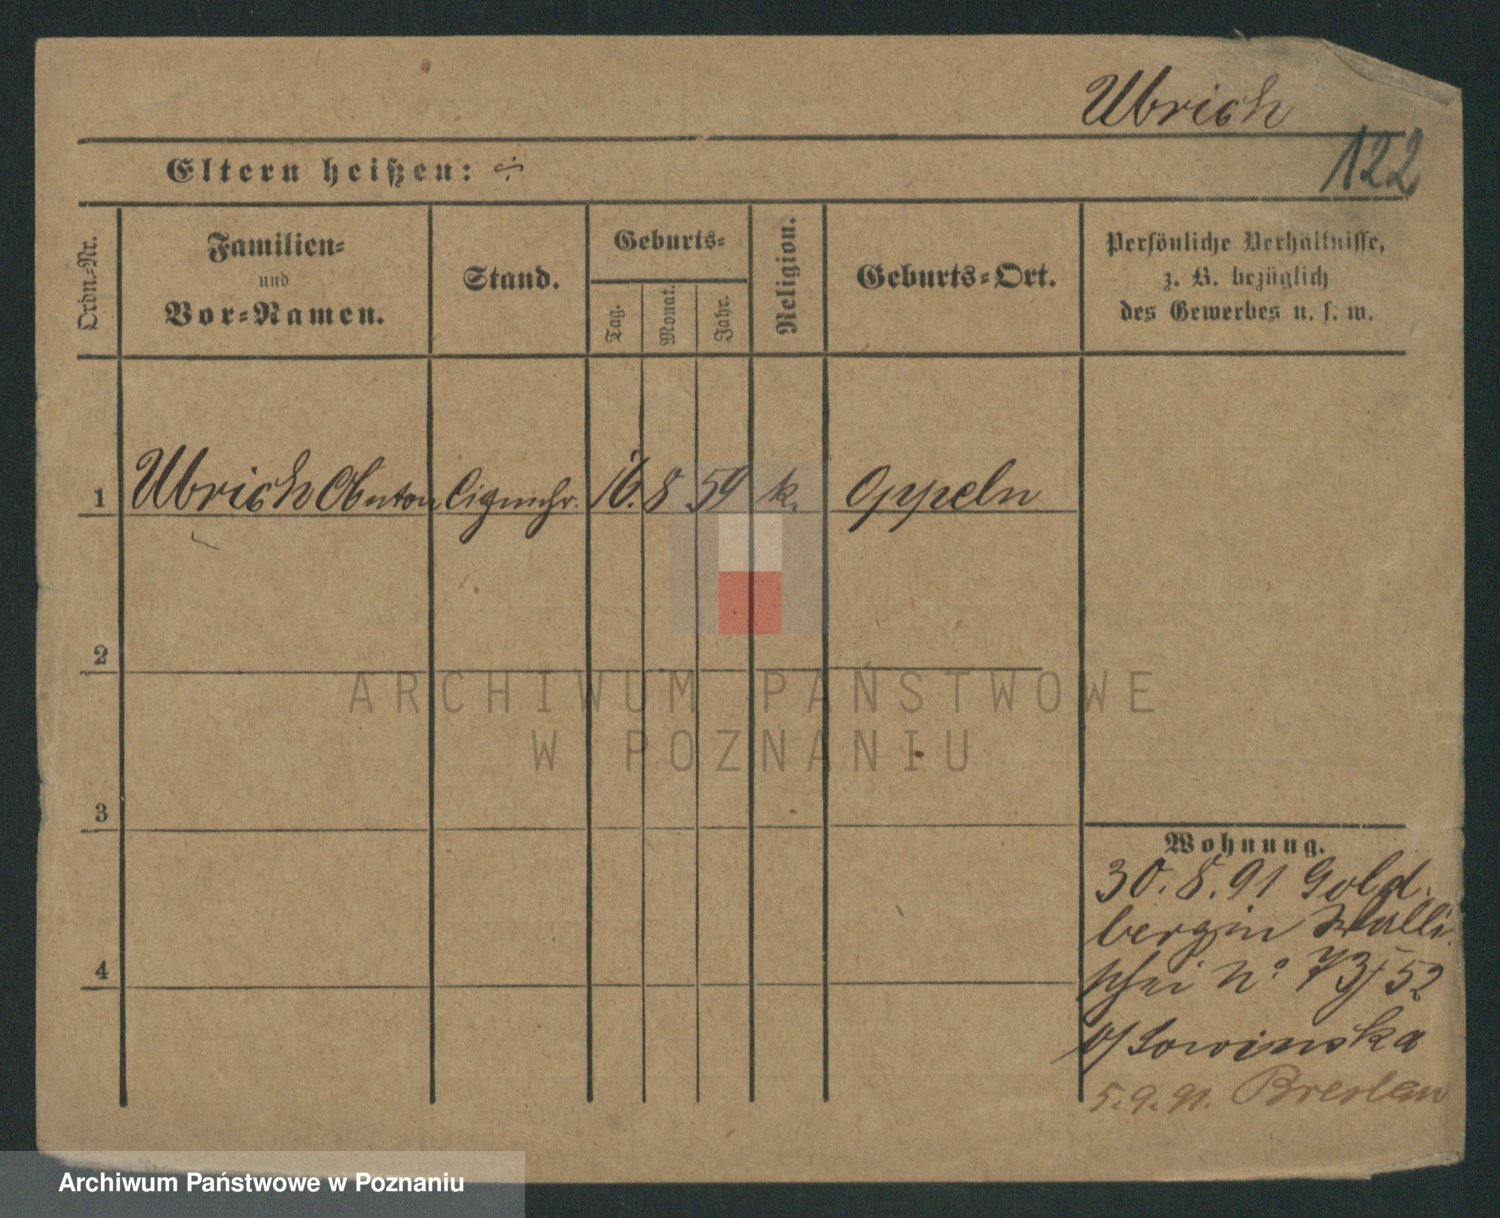 Ubrich
122
Eltern heißen: ÷
Ordn.-Nr.
Familien-
und
Vor-Namen.
Stand.
Geburts-
Tag.
Monat.
Jahr.
Religion.
Geburts-Ort.
Persönliche Verhältnisse,
z. B. bezüglich
des Gewerbes u. s. w.
1 Ubrich Anton 16. 8 59 k. Oppeln
2
3
4
Wohnung.
30. 8. 91 Gold.
bergin Walli-
schei No 73/52
b/ Sowinska
5. 9. 91. Breslau
ARCHIWUM PAŃSTWOWE
W POZNANIU
Archiwum Państwowe w Poznaniu